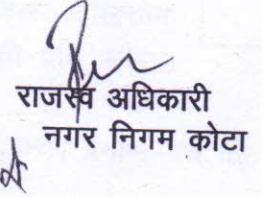 राजस्व अधिकारी
नगर निगम कोटा